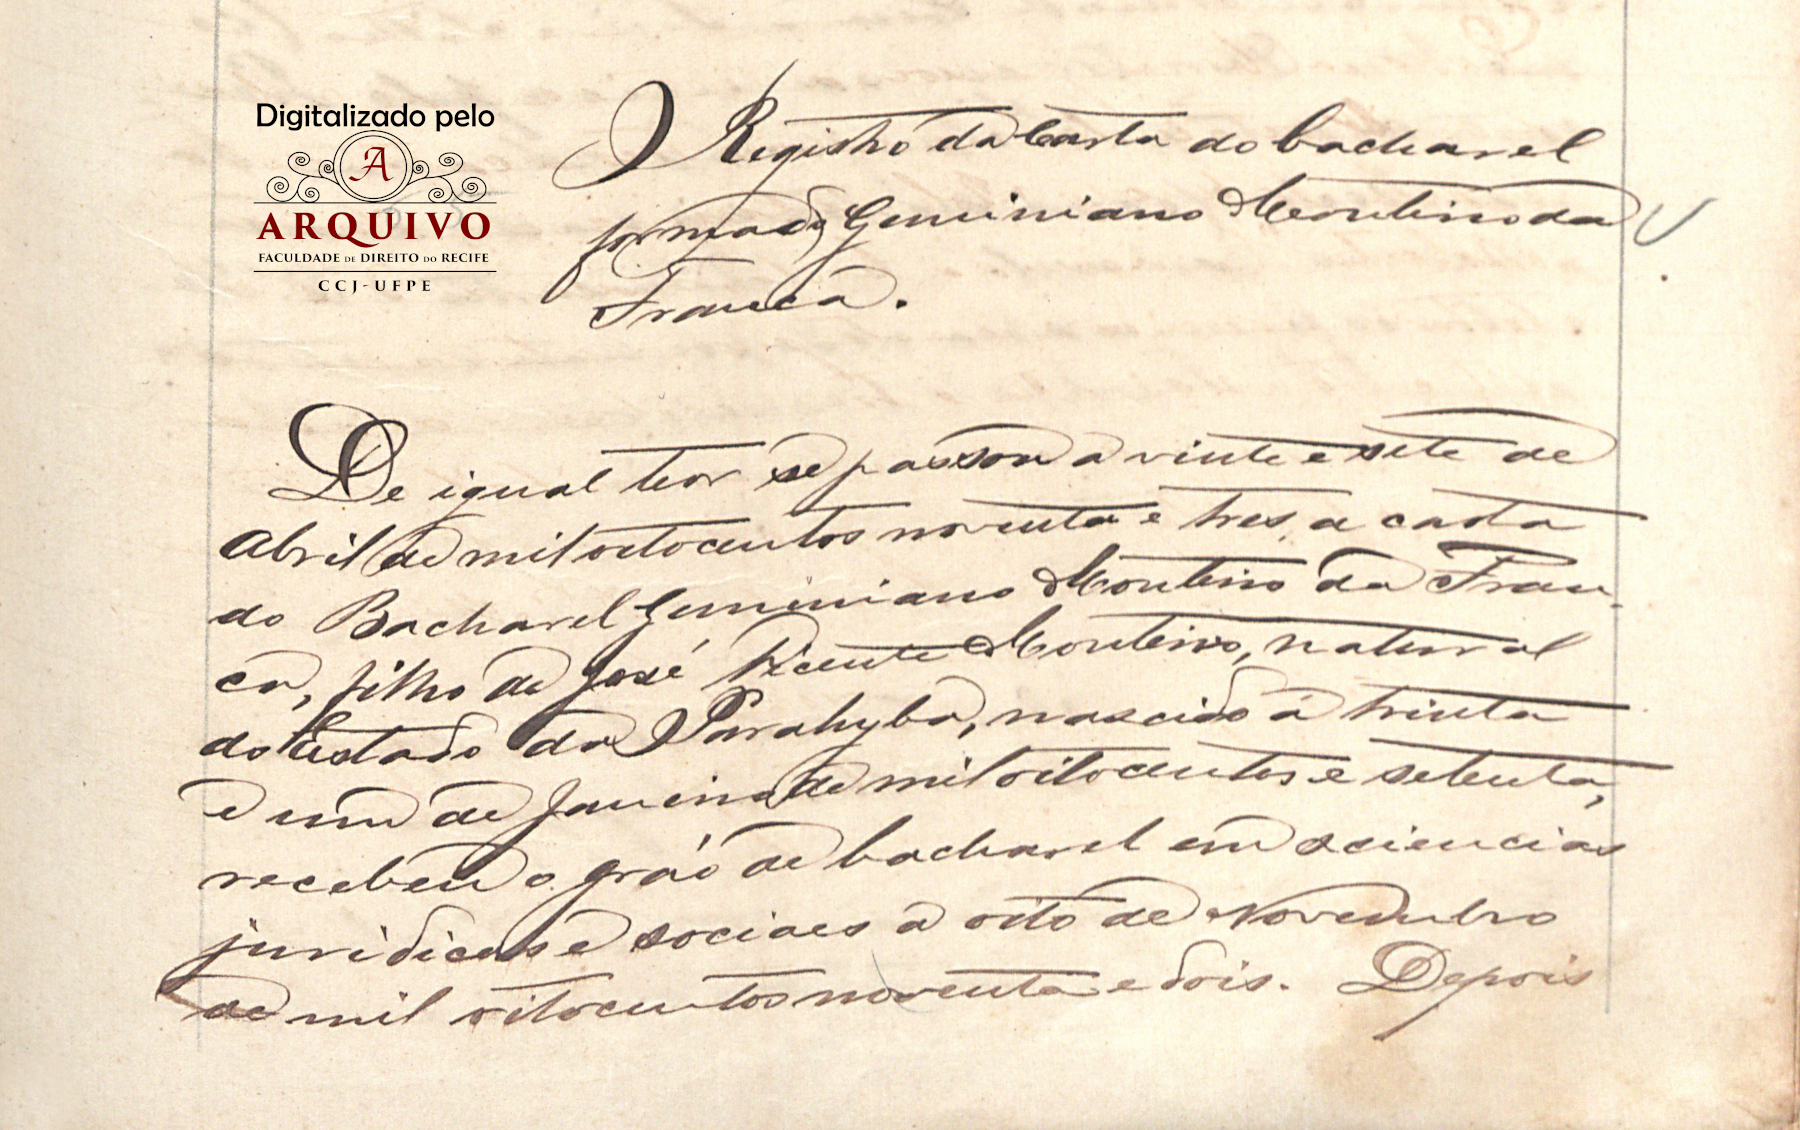 Digitalizado pelo
A
ARQUIVO
FACULDADE DE DIREITO DO RECIFE
CCJ-UFPE
Registro da Carta do bacharel
formado Geminiano Monteiro da
Franca.
De igual teor se passou a vinte e sete de
Abril de mil oitocentos noventa e tres, a carta
do Bacharel Geminiano Monteiro da Fran-
ca, filho de José Vicente Monteiro, natural
do Estado da Parahyba, nascido á trinta
e um de Janeiro de mil oitocentos e setenta,
recebeu o gráo de bacharel em sciencias
juridicas e sociaes a oito de Novembro
de mil oitocentos noventa e dois. Depois